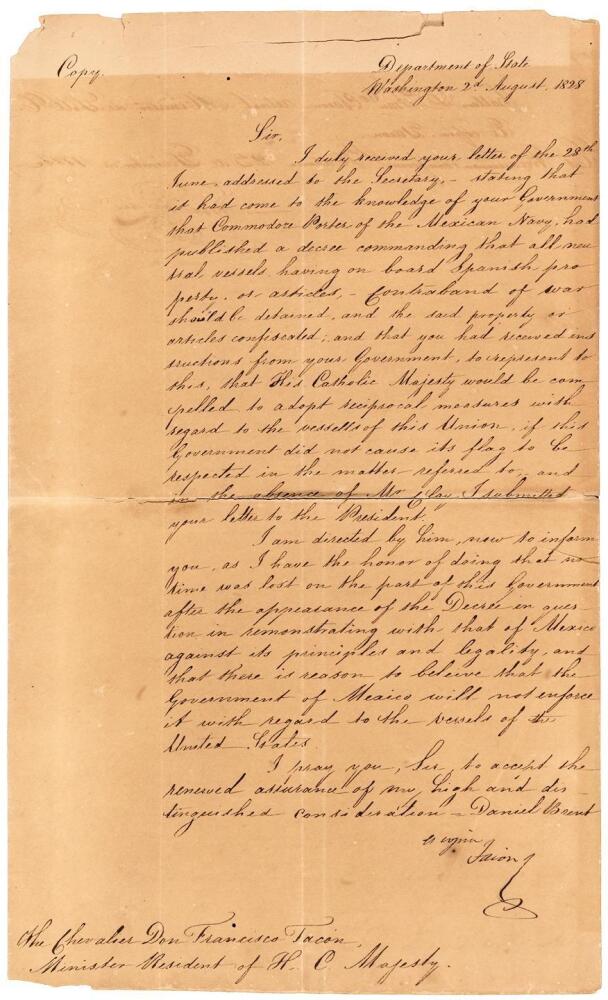 Copy.
Department of State
Washington 2d August, 1828
Sir,
I duly received your letter of the 28th
June, addressed to the Secretary, – stating that
it had come to the knowledge of your Government
that Commodore Porter of the Mexican Navy, had
published a decree commanding that all neu
tral vessels, having on board Spanish pro
perty, or articles, – Contraband of war
should be detained, and the said property or
articles confiscated; and that you had received ins
tructions from your Government, to represent to
this, that His Catholic Majesty would be com
pelled to adopt reciprocal measures with
regard to the vessells of this Union, if this
Government did not cause its flag to be
respected in the matter referred to, and
in the absence of Mr Clay, I submitted
your letter to the President.
I am directed by him, now to inform
you, as I have the honor of doing that no
time was lost on the part of this Government
after the appearance of the Decree in ques
tion in remonstrating with that of Mexico
against its principles and legality, and
that there is reason to beleive that the
Government of Mexico will not enforce
it with regard to the vessels of the
United States.
I pray you, Sir, to accept the
renewed assurance of my high and dis
tinguished consideration = Daniel Brent
es copia
Tacon
The Chevalier Don Francisco Tacon,
Minister Resident of H. C Majesty.